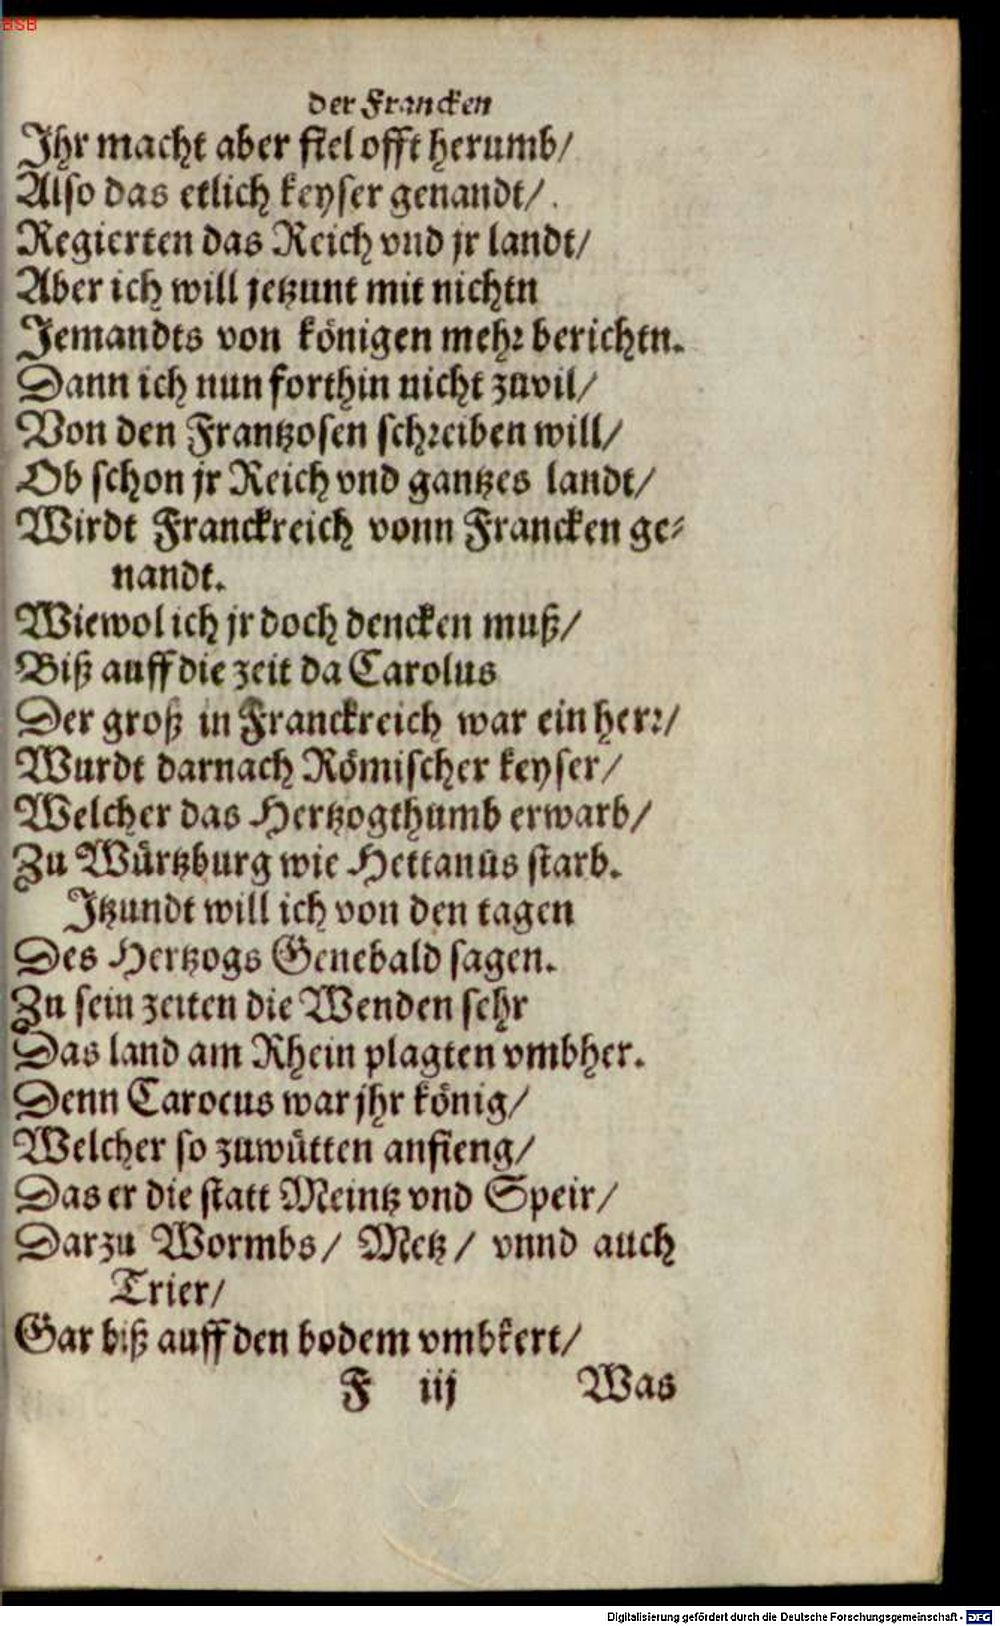 BSB
der Francken
Ihr macht aber fiel offt herumb/
Also das etlich keyser genandt/.
Regierten das Reich vnd jr landt/
Aber ich will jetzunt mit nichtn
Jemandts von königen mehr berichtn.
Dann ich nun forthin nicht zuvil/
Von den Frantzosen schreiben will/
Ob schon jr Reich vnd gantzes landt/
Wirdt Franckreich vonn Francken ge-
nandt.
Wiewol ich jr doch dencken muß/
Biß auff die zeit da Carolus
Der groß in Franckreich war ein herr/
Wurdt darnach Römischer keyser/
Welcher das Hertzogthumb erwarb/
Zu Würtzburg wie Hettanus starb.
Itzundt will ich von den tagen
Des Hertzogs Genebald sagen.
Zu sein zeiten die Wenden sehr
Das land am Rhein plagten vmbher.
Denn Carocus war jhr könig/
Welcher so zuwütten anfieng/
Das er die statt Meintz vnd Speir/
Darzu Wormbs/ Metz/ vnnd auch
Trier/
Gar biß auff den bodem vmbkert/
F iij Was
Digitalisierung gefördert durch die Deutsche Forschungsgemeinschaft - DFG